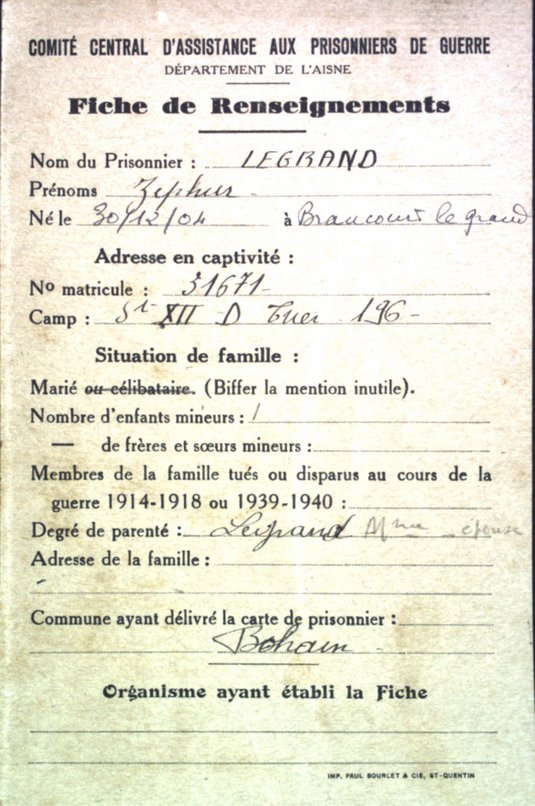 COMITÉ CENTRAL D'ASSISTANCE AUX PRISONNIERS DE GUERRE
DÉPARTEMENT DE L'AISNE
Fiche de Renseignements
Nom du Prisonnier : LEGRAND
Prénoms Zéphur
Né le 30/12/04 à Brancourt le grand
Adresse en captivité :
No matricule : 31671
Camp : St XII D Trier 196
Situation de famille :
Marié ou célibataire. (Biffer la mention inutile).
Nombre d'enfants mineurs : 1
— de frères et sœurs mineurs :
Membres de la famille tués ou disparus au cours de la
guerre 1914-1918 ou 1939-1940 :
Degré de parenté : Legrand Mme épouse
Adresse de la famille :
Commune ayant délivré la carte de prisonnier :
Bohain
Organisme ayant établi la Fiche
IMP. PAUL BOURLET & CIE, ST-QUENTIN